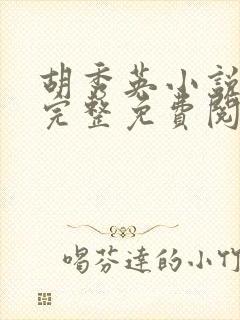 胡秀英小説
完整免費閱
喝芬達的小竹